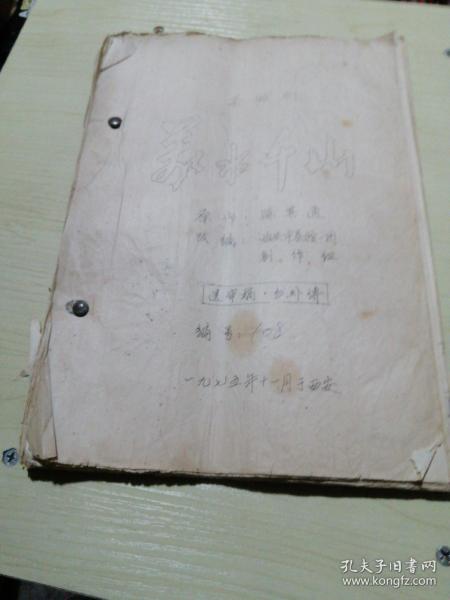 万水千山
原作：陈其通
改编：
创作组
送审稿·勿外传
编号：108
一九七五年十一月于西安
孔夫子旧书网
www.kongfz.com